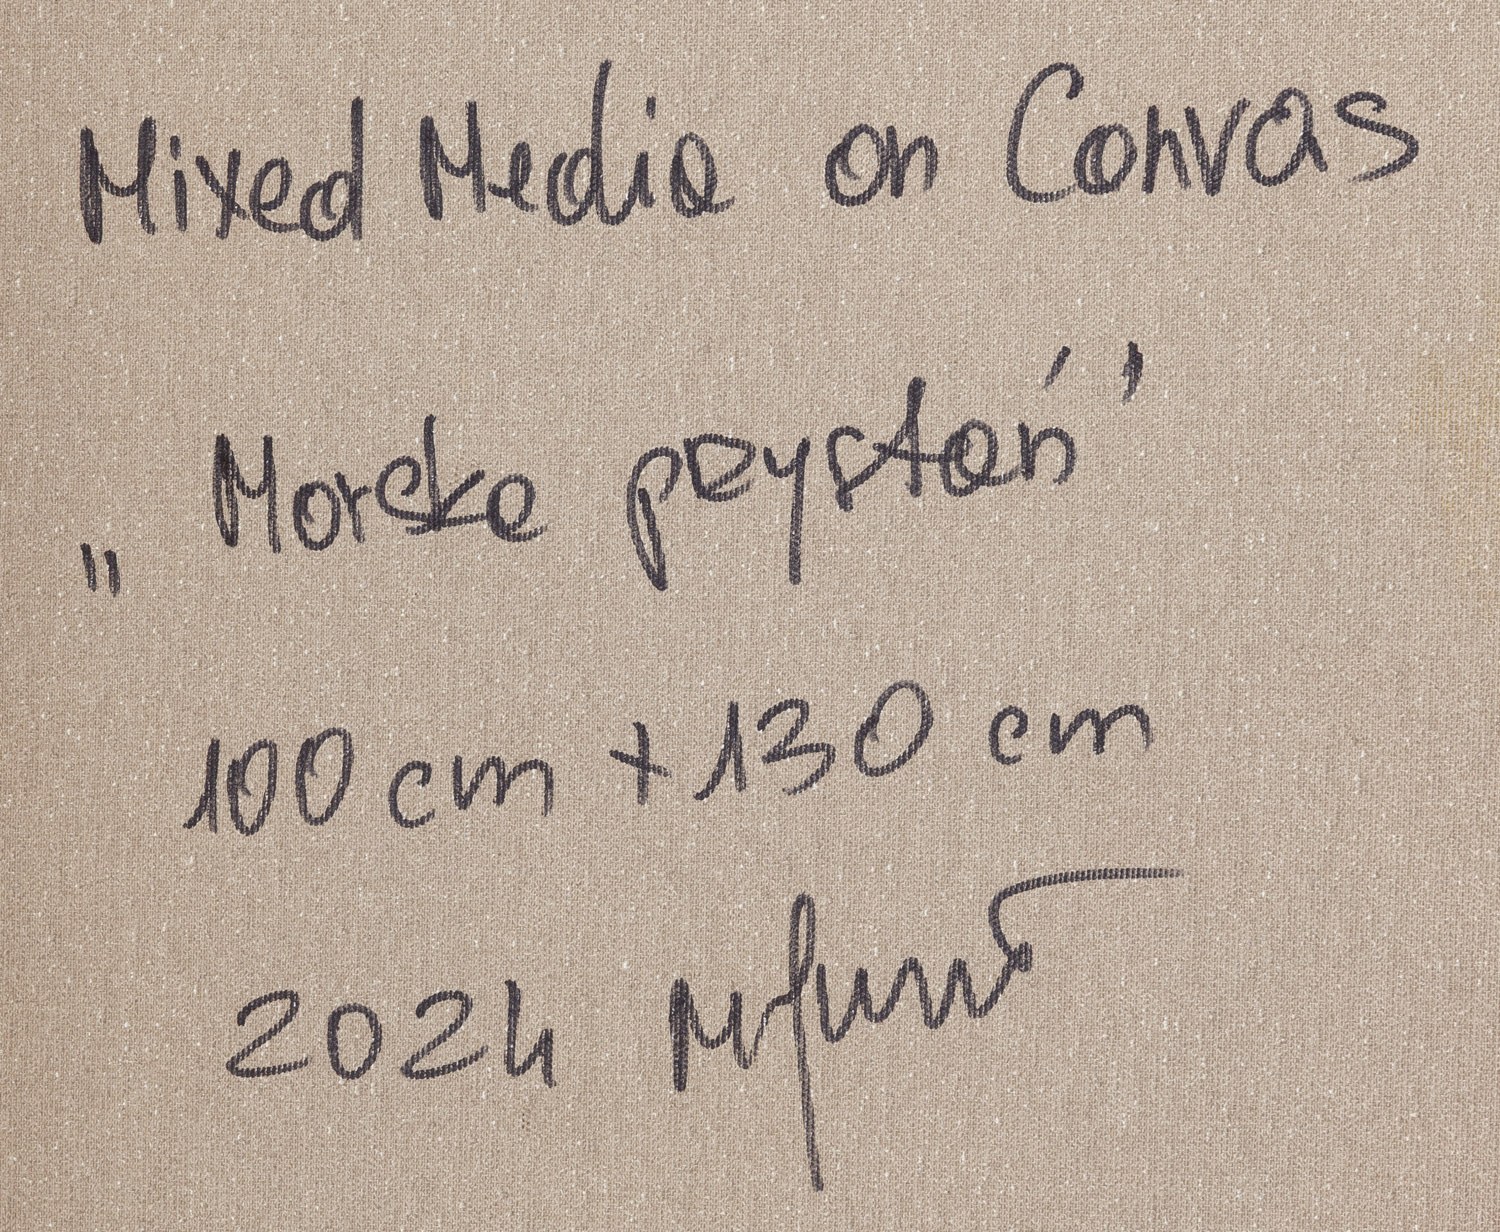 Mixed Media on Canvas
„ Morska przystań”
100 cm x 130 cm
2024